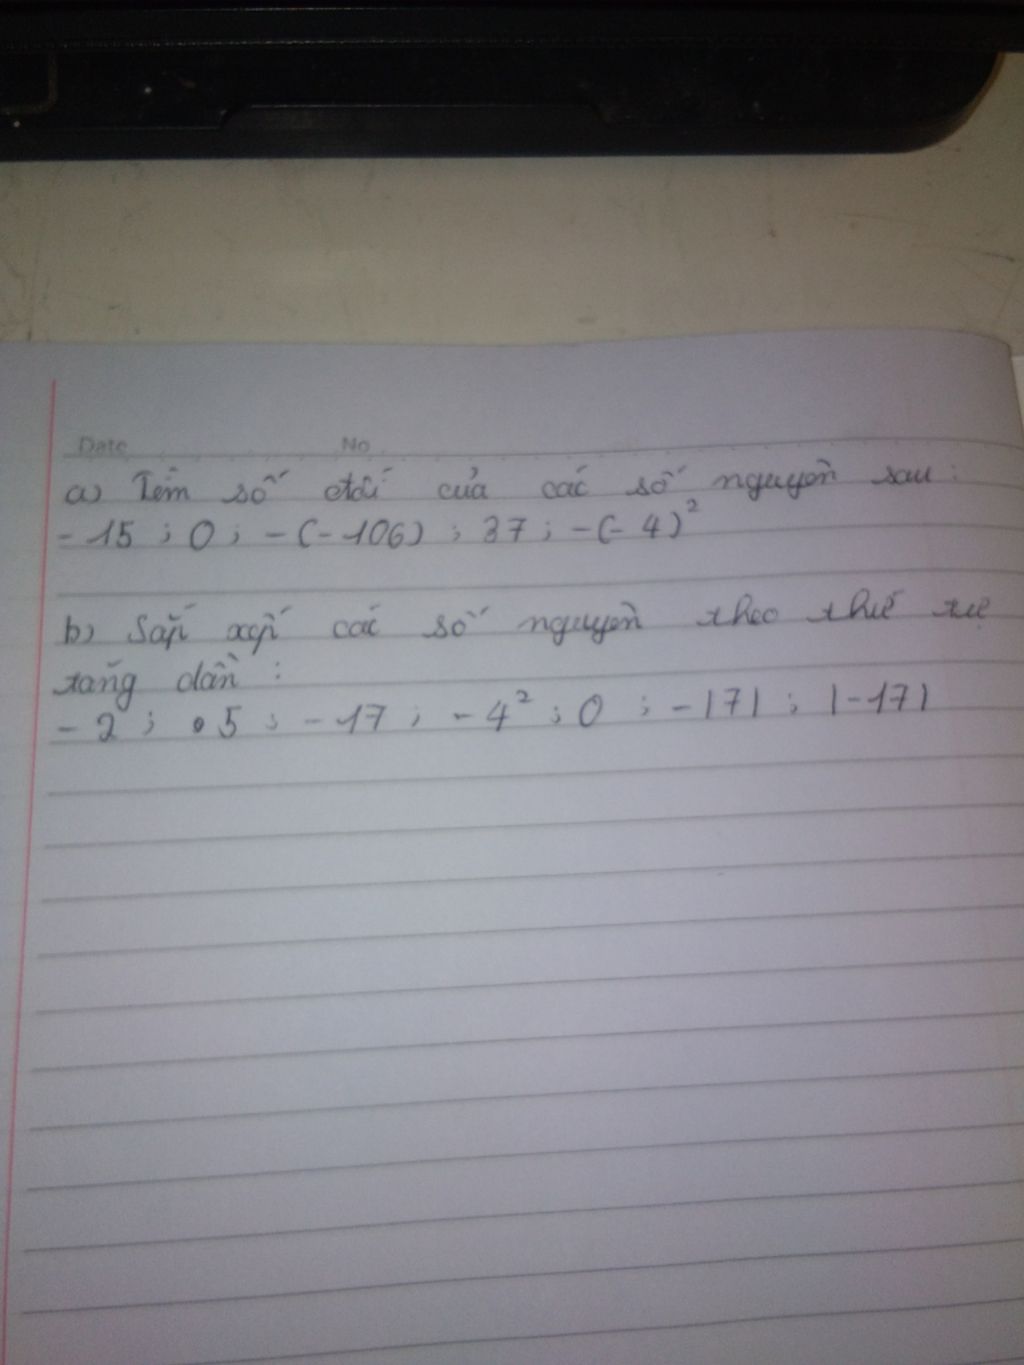 Date No
a) Tìm số đối của các số nguyên sau:
-15 ; 0 ; -(-106) ; 37 ; -(-4)²
b) Sắp xếp các số nguyên theo thứ tự
tăng dần :
-2 ; 5 ; -17 ; -4² ; 0 ; -|7| ; |-17|